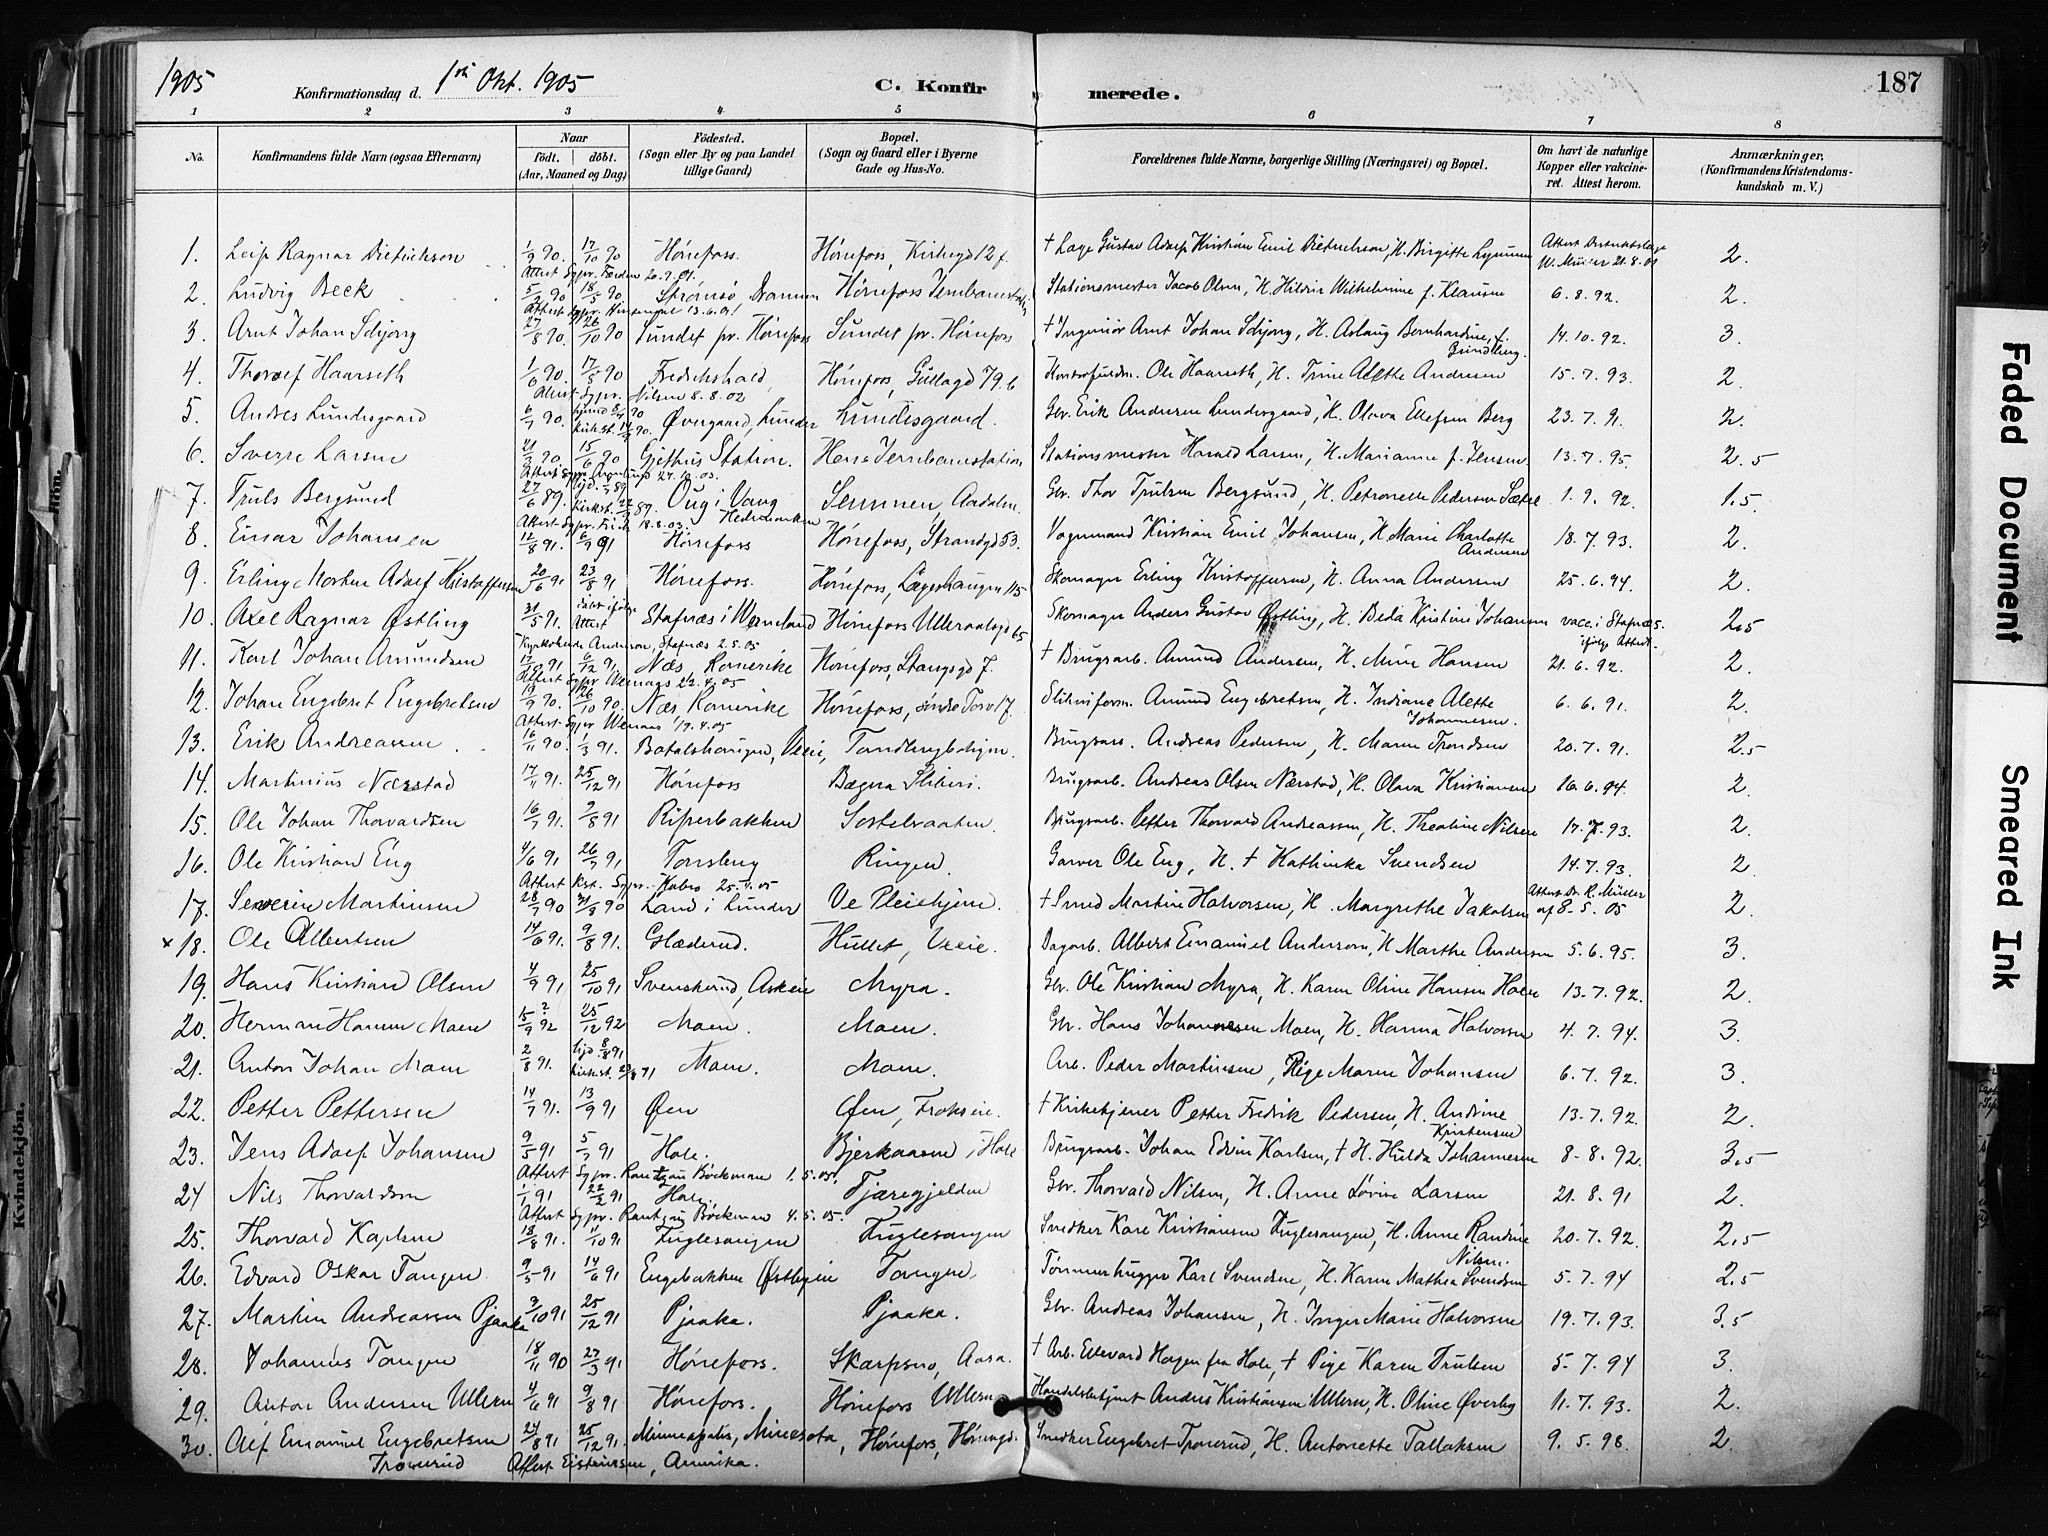 1905 Konfirmationsdag d. 1ste Okt. 1905 C. Konfirmerede. 187
1 2 3 4 5 6 7 8
No. Konfirmandens fulde Navn (ogsaa Efternavn) Naar født. døbt. (Aar, Maaned og Dag) Födested. (Sogn eller By og paa Landet lillige Gaard) Bopæl. (Sogn og Gaard eller i Byerne Gade og Hus-No. Forældrenes fulde Navne, borgerlige Stilling (Næringsvei) og Bopæl. Om havt de naturlige Kopper eller vakcineret. Attest herom. Anmærkninger, (Konfirmandens Kristendomskundskab m. V.)
1. Leif Ragnar Dietrichson 1/9 90. 17/10 90 Hønefoss. Hønefoss, Kirkegd 12 f. † Gustav Adolf Kristian Emil Dietrichson, H. Birgitte 2.
2. Ludvig Beck 5/2 90 18/5 90. Strømsø, Drammen Hønefoss Jernbanestation Stationsmester Jacob Olsen, H. Hilda Wilhelmine f. Klausen 6.8.92. 2.
3. Arnt Johan Schjong 27/8 90. 26/10 90 Sundet pr. Hønefoss Sundet pr. Hønefoss † Ingeniör Arnt Johan Schjong, H. Aslaug Bernhardine, f. 14.10.92. 3.
4. Thoralf Haarseth 1/6 90. 17/8 90 Fredrikshald, Hønefoss, Gullagd 79.b Ole Haarseth, H. Trine Alette Andresen 15.7.93. 2.
Attest Sypr. Nilsen 8.8.02
5. Andres Lundesgaard 6/7 90. Øvergaard, Lunder Lundesgaard. Gbr. Erik Andersen Lundesgaard, H. Olava Ellefsen Berg 23.7.91. 2.
6. Sverre Larsen 21/3 90. 15/6 90 Gjethus Station. Hens Jernbanestation Stationsmester Harald Larsen, H. Marianne f. Jensen 13.7.95. 2.5
7. Truls Bergsund 27/6 89. Oug i Vang Hedemarken Semmen, Aadalen. Gbr. Thor Trulsen Bergsund, H. Petronelle Pedersen 1.9.92. 1.5
8. Einar Johansen 12/8 91. 6/9 91 Hønefoss Hønefoss, Strandgd 53. Vognmand Kristian Emil Johansen, H. Marie Charlotte Andersen 18.7.93. 2.
9. Erling Morten Adolf Kristoffersen 20/6 91 23/8 91 Hønefoss. Hønefoss, Løkkehaugen 115 Skomager Erling Kristoffersen, H. Anna Andersen 25.6.94. 2.
10. Axel Ragnar Østling 31/5 91. døbt ifølge Attest Stafnæs i Wermland Hønefoss Ulleraalsgd 65 Skomager Anders Gustav Østling, H. Beda Kristine Johansen vacc. i Stafnæs. ifølge Attest. 2.5
Kyrkoherde Anderson, Stafnæs 2.5.05
11. Karl Johan Amundsen 17/10 91 6/12 91. Næs, Romerike Hønefoss, Stangsgd 7. † Brugsarb. Amund Andersen, H. Mine Hansen 21.6.92. 2.
Attest Sypr Wenaas 22.4.05
12. Johan Engebret Engebretsen 19/9 90. 26/10 90. Næs Romerike Hønefoss, søndre Torv 17. Sliberiform. Amund Engebretsen, H. Indiane Alette Johannesen. 6.6.91. 2.
Attest Sypr Wenaas 19.4.05
13. Erik Andreassen 16/11 90. 1/3 91. Batalshaugen, Veie, Tandbergboligen. Brugsarb. Andreas Pedersen, H. Maren Trondsen 20.7.91. 2.5
14. Martinius Nærstad 17/11 91. 25/12 91 Hønefoss Bægna Sliberi. Brugsarb. Andreas Olsen Nærstad, H. Olava Kristiansen 16.6.94. 2.
15. Ole Johan Thorvardsen 16/7 91. 9/8 91 Ripserbakken Brugsarb. Petter Thorvald Andreassen, H. Theoline Nilsen 17.7.93. 2.
16. Ole Kristian Eng 4/6 91 26/7 91 Tønsberg Ringen. Garver Ole Eng, H. † Kathinka Svendsen 14.7.93. 2.
17. Severin Martinsen 28/7 90 31/8 90 Land i Lunder Ve Pleiehjem. † Smed Martin Halvorsen, H. Margrethe Jakobsen Attest Dr. R. Müller af 8-5.05 2.
x 18. Ole Albertsen 14/6 91. 9/8 91. Glæderud. Hullet, Veie. Dagarb. Albert Emanuel Anderson, H. Marthe Andersen 5.6.95. 3.
19. Hans Kristian Olsen 4/9 91 25/10 91 Svenskerud, Asken Myra. Gbr. Ole Kristian Myra, H. Karen Oline Hansen Holen 13.7.92. 2.
20. Herman Hansen Moen 15/9 92 25/12 92 Moen. Moen. Gbr. Hans Johannesen Moen, H. Hanna Halvorsen 4.7.94. 3.
21. Anton Johan Moen 2/8 91. Moen. Moen. Arb. Peder Martinsen, Pige Maren Johansen 6.7.92. 3.
22. Petter Pettersen 14/7 91. 13/9 91 Øen Øen, Froksøie. † Kirketjener Petter Fredrik Pedersen, H. Andrine Kristensen 13.7.92. 2.
23. Jens Adolf Johansen 9/5 91 5/7 91 Hole. Bjerkaasen i Hole Brugsarb. Johan Edvin Karlsen, † H. Hulda Johannesen 8-8.92. 3.5
Attest Sypr. Rantzau Bøckman 1.5.05.
24 Nils Thorvaldsen 1/1 91 22/2 91 Hole. Tjæregjelden Gbr. Thorvald Nilsen, H. Anne Lovise Larsen 21.8.91 2.
Attest Sypr. Rantzau Bøckman 4.5.05.
25. Thorvald Karlsen 18/8 91. 11/10 91 Fuglesangen Fuglesangen Snedker Kare Kristiansen Fuglesangen, H. Anne Randine Nilsen. 20.7.92. 2.5
26. Edvard Oskar Tangen 9/5 91 14/6 91 Engebakken Østbygden Tangen. Tømmerhugger Karl Svendsen, H. Karen Mathea Svendsen 5.7.94 2.5
27. Martin Andreassen Pjaaka 3/10 91 25/12 91 Pjaaka. Pjaaka. Gbr. Andreas Johansen, H. Inger Marie Halvorsen 19.7.93. 3.5
28. Johannes Tangen 18/11 90 27/3 91 Hønefoss. Skarpsno, Aasa. † Arb. Ellevard Hagen fra Hole, † Pige Karen Trulsen 5-7.94 3.
29. Anton Andersen Ullern 4/6 91 9/8 91 Hønefoss. Hønefoss Ullern Handelsbetjent Andres Kristiansen Ullern, H. Oline Øverby 11.7.93. 2.
30. Alf Emanuel Engebretsen Tronrud 24/8 91 25/12 91. Minneapolis, Minesota, Hønefoss, Snedker Engebret Tronrud, H. Antonette Tallaksen 9.5.98. 2.
Attest Eistensen, Amerika.
Faded Document
Smeared Ink
Kvindekjön.